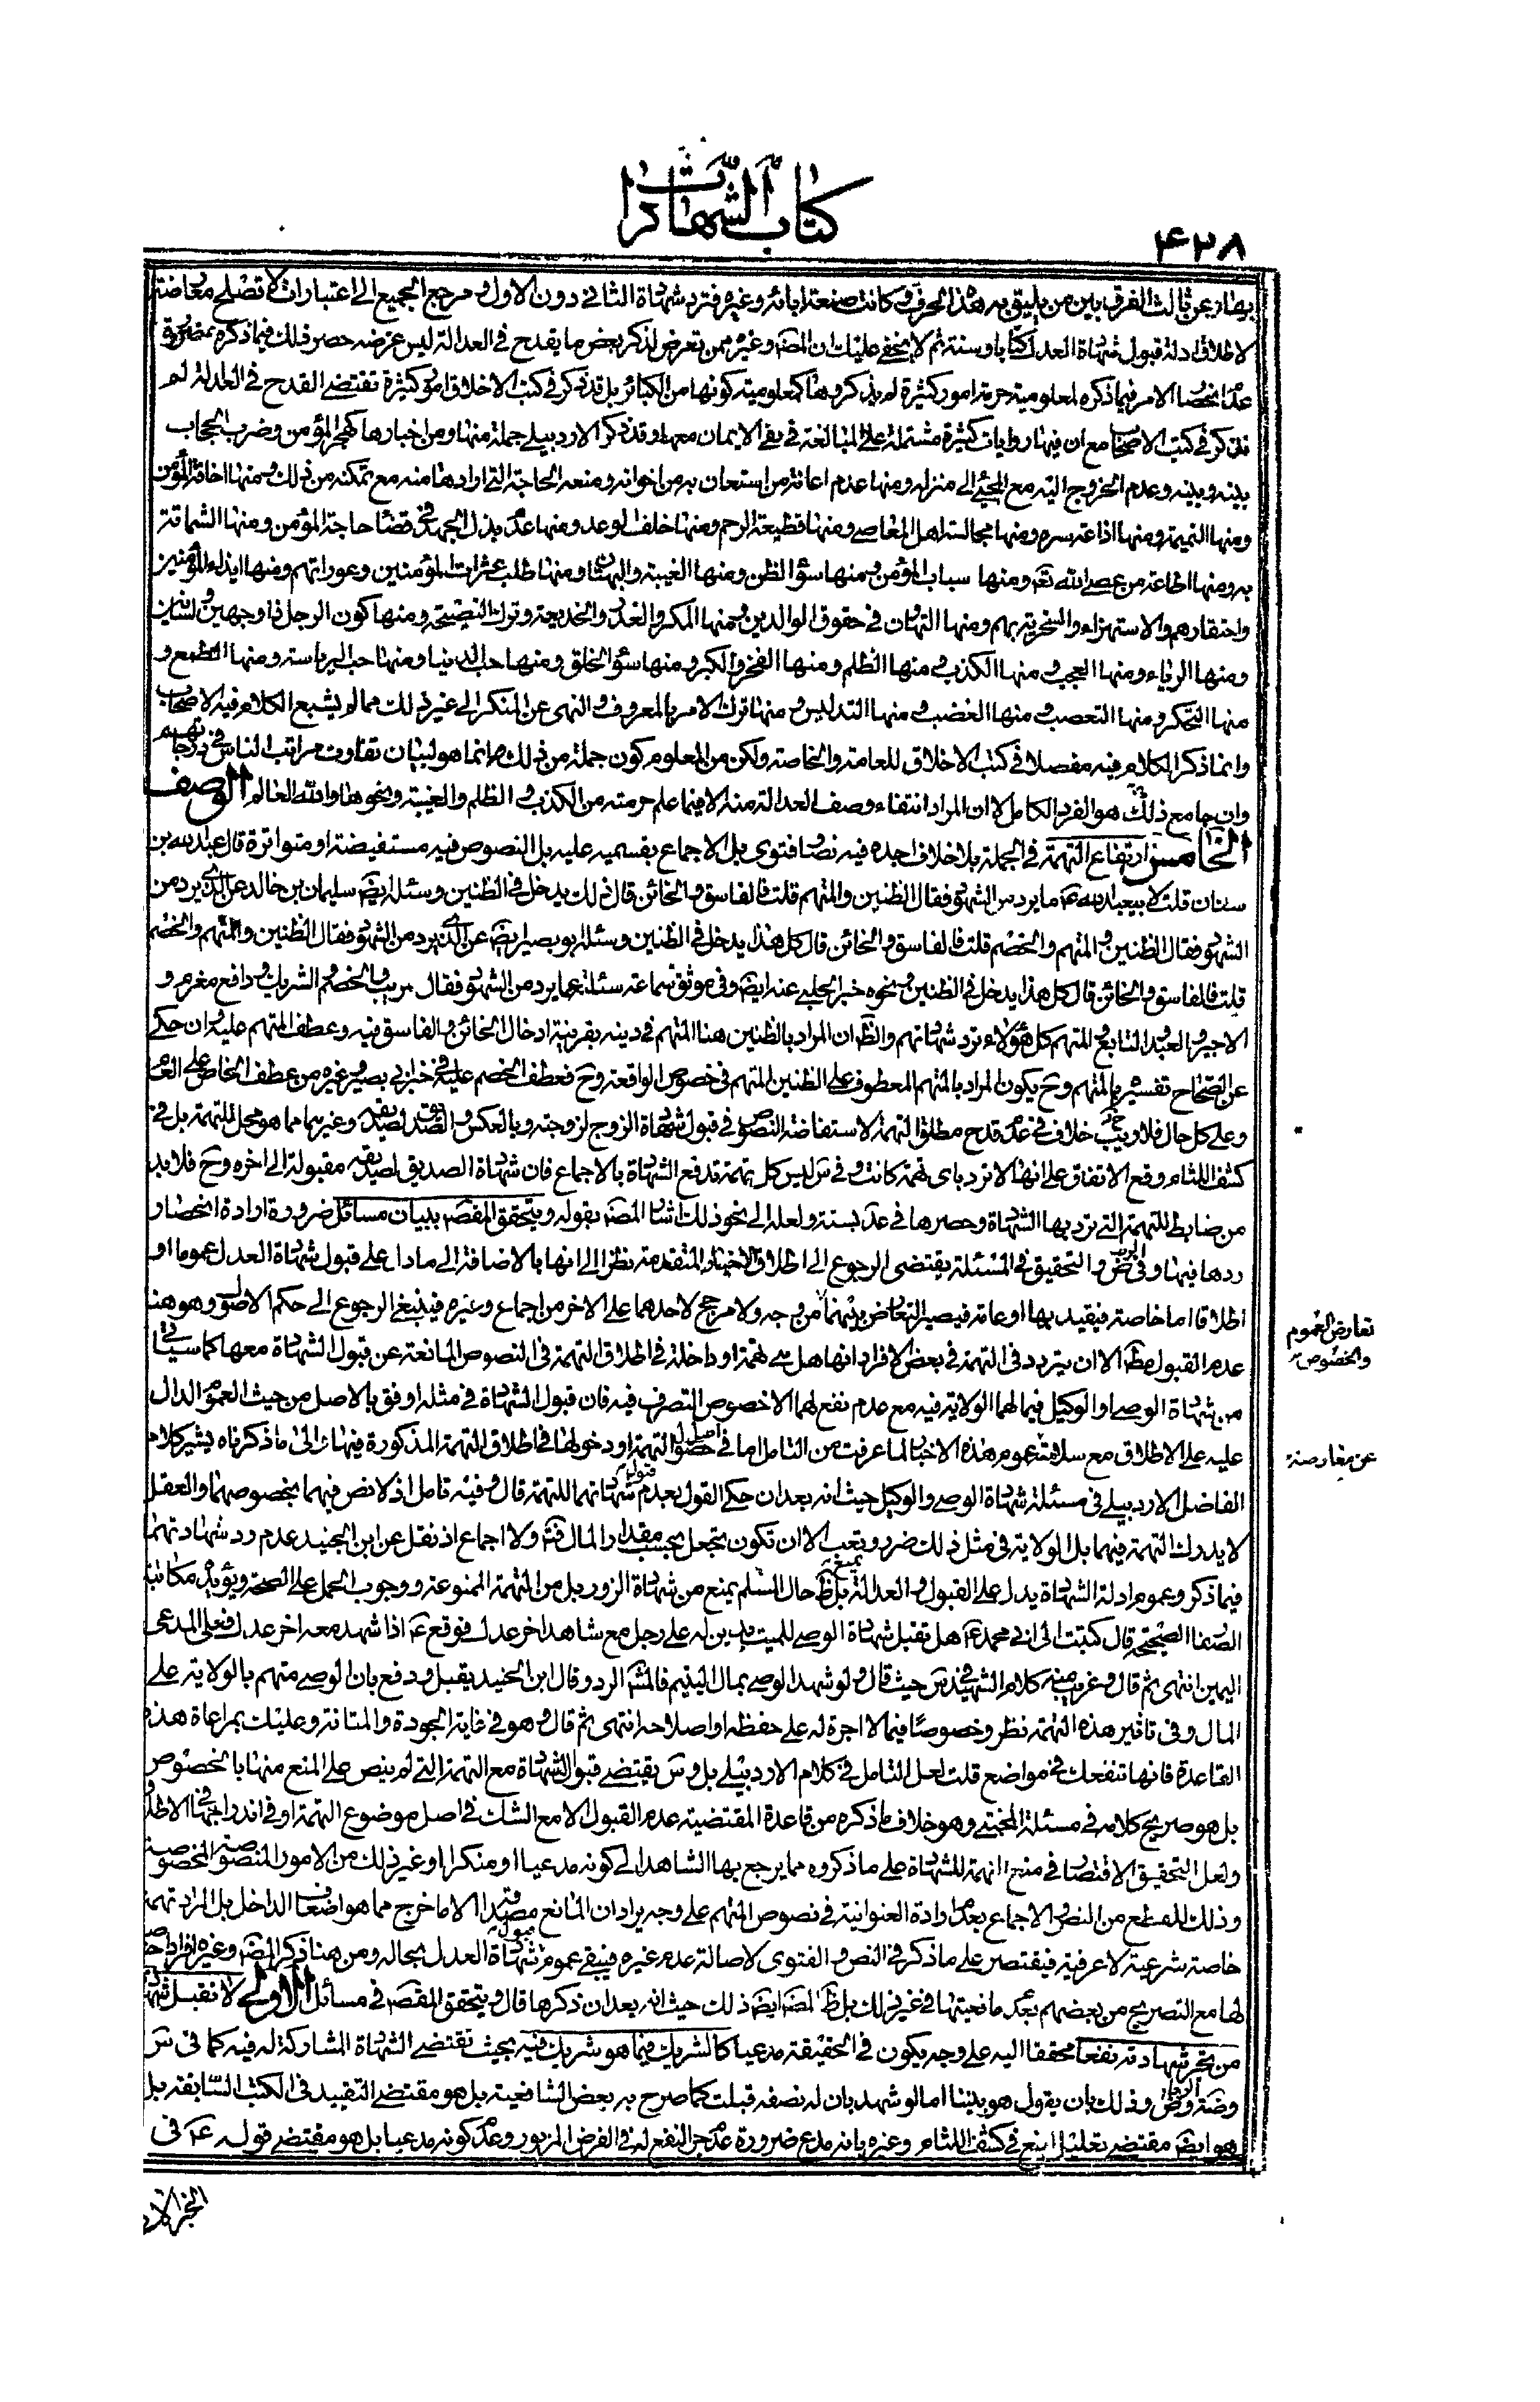 كتاب الشهادات
۴۲۸
بها وعن ثالث الفرق بين من يليق به هذا الحرف وكانت صنعة ابائه وغيره فترد شهادة الثانى دون الاول ومرجع الجميع الى اعتبارات لا تصلح معارضة
لاطلاق ادلة قبول شهادة العدل كتابا وسنة ثم لا يخفى عليك ان المصَ وغيره ممن تعرض لذكر بعض ما يقدح فى العدالة ليس غرضه حصر ذلك فيما ذكره ضرورة
عدم انحصار الامر فيما ذكره لمعلومية حرمة امور كثيرة لم يذكروها كمعلومية كونها من الكبائر بل قد ذكر فى كتب الاخلاق امور كثيرة تقتضى القدح فى العدالة لم
تذكر فى كتب الاصحاب مع ان فيها روايات كثيرة مشتملة على المبالغة فى نفى الايمان معها وقد ذكر الاردبيلى جملة منها ومن اخبارها كهجر المؤمن وضرب الحجاب
بينه وبينه وعدم الخروج اليه مع المجئ الى منزله ومنها عدم اعانة من استعان به من اخوانه ومنعه الحاجة التى ارادها منه مع تمكنه من ذلك ومنها اخافة المؤمن
ومنها النميمة ومنها اذاعة سره ومنها مجالسة اهل المعاصى ومنها قطيعة الرحم ومنها خلف الوعد ومنها عدم بذل الجهد فى قضاء حاجة المؤمن ومنها الشماتة
به ومنها اطاعة من عصى الله تعَ ومنها سباب المؤمن ومنها سوء الظن ومنها الغيبة والبهتان ومنها طلب عثرات المؤمنين وعوراتهم ومنها ايذاء المؤمنين
واحتقارهم والاستهزاء والسخرية بهم ومنها التهاون فى حقوق الوالدين ومنها المكر والغدر والخديعة وترك النصيحة ومنها كون الرجل ذا وجهين ولسانين
ومنها الرياء ومنها العجب ومنها الكذب ومنها الظلم ومنها الفخر والكبر ومنها سوء الخلق ومنها حب الدنيا ومنها حب الرياسة ومنها الطمع و
منها التكبر ومنها التعصب ومنها الغضب ومنها التدليس ومنها ترك الامر بالمعروف والنهى عن المنكر الى غير ذلك مما لم يشبع الكلام فيه الاصحاب
وانما ذكر الكلام فيه مفصلا فى كتب الاخلاق للعامة والخاصة ولكن من المعلوم كون جملة من ذلك انما هو لبيان تفاوت مراتب الناس فى درجاتهم
وان جامع ذلك هو الفرد الكامل لا ان المراد انتفاء وصف العدالة منه الا فيما علم حرمته من الكذب والظلم والغيبة ونحوها والله العالم الوصف
الخامس ارتفاع التهمة فى الجملة بلا خلاف اجده فيه نصا وفتوى بل الاجماع بقسميه عليه بل النصوص فيه مستفيضة او متواترة قال عبد الله بن
سنان قلت لابيعبد الله عَ ما يرد من الشهود فقال الظنين والمتهم قلت فالفاسق والخائن قال ذلك يدخل فى الظنين وسئله ايضَ سليمان بن خالد عن الذى يرد من
الشهود فقال الظنين والمتهم والخصم قلت فالفاسق والخائن قال كل هذا يدخل فى الظنين وسئله ابو بصير ايضَ عن الذى يرد من الشهود فقال الظنين والمتهم والخصم
قلت فالفاسق والخائن قال كل هذا يدخل فى الظنين ونحوه خبر الحلبى عنه ايضَ وفى موثق سماعة سئلته عما يرد من الشهود فقال المريب والخصم والشريك ودافع مغرم و
الاجير والعبد والتابع والمتهم كل هؤلاء ترد شهاداتهم والظَ ان المراد بالظنين هنا المتهم فى دينه بقرينة ادخال الخائن والفاسق فيه وعطف المتهم عليه وان حكى
عن الصحاح تفسيره بالمتهم وحَ يكون المراد بالمتهم المعطوف على الظنين المتهم فى خصوص الواقعة وحَ فعطف الخصم عليه فى خبر ابى بصير وغيره من عطف الخاص على العام
وعلى كل حال فلا ريب ولا خلاف فى عدم قدح مطلق التهمة لاستفاضة النصوص فى قبول شهادة الزوج لزوجته وبالعكس والصديق لصديقه وغيرهما مما هو محل للتهمة بل فى
كشف اللثام وقع الاتفاق على انها لا ترد باى تهمة كانت وفى سَ ليس كل تهمة تدفع الشهادة بالاجماع فان شهادة الصديق لصديقه مقبولة الى اخره وحَ فلا بد
من ضابط للتهمة التى ترد بها الشهادة وحصرها فى عدد بسنة ولعله الى نحو ذلك اشار المصَ بقوله ويتحقق المقصَ ببيان مسائل ضرورة ارادة انحصار
ردها فيها وفى الرياض والتحقيق فى المسئلة يقتضى الرجوع الى اطلاق الاخبار المتقدمة نظرا الى انها بالاضافة الى ما دل على قبول شهادة العدل عموما او
اطلاقا اما خاصة فيقيد بها او عامة فيصير التعارض بينهما من وجه ولا مرجح لاحدهما على الاخر من اجماع وغيره فينبغى الرجوع الى حكم الاصل وهو هنا
عدم القبول مطَ الا ان يتردد فى التهمة فى بعض الافراد انها هل هى تهمة او داخلة فى اطلاق التهمة فى النصوص المانعة عن قبول الشهادة معها كما سياتى
من شهادة الوصى او الوكيل فيما لهما الولاية فيه مع عدم نفع لهما الا خصوص التصرف فيه فان قبول الشهادة فى مثله اوفق بالاصل من حيث العموم الدال
عليه على الاطلاق مع سلامته عن معارضة عموم هذه الاخبار لما عرفت من التامل اما فى اصل حصول التهمة او دخولها فى اطلاق التهمة المذكورة فيها والى ما ذكرناه يشير كلام
الفاضل الاردبيلى فى مسئلة شهادة الوصى والوكيل حيث انه بعد ان حكى القول بعدم قبول شهادتهما للتهمة قال وفيه تامل اذ لا نص فيهما بخصوصهما والعقل
لا يدرك التهمة فيهما بل الولاية فى مثل ذلك ضرر وتعب الا ان تكون بجعل بحسب مقدار المال فتَ ولا اجماع اذ نقل عن ابن الجنيد عدم رد شهادتهما
فيما ذكر وعموم ادلة الشهادة يدل على القبول والعدالة تمنع بل ظَ حال المسلم يمنع من شهادة الزور بل من التهمة الممنوعة ووجوب الحمل على الصحة ويؤيده مكاتبة
الصفار الصحيحة قال كتبت الى ابى محمد عَ هل تقبل شهادة الوصى للميت بدين له على رجل مع شاهد اخر عدل فوقع عَ اذا شهد معه اخر عدل فعلى المدعى
اليمين انتهى ثم قال وقريب منه كلام الشهيد فى سَ حيث قال ولو شهد الوصى بمال اليتيم فالمشَ الرد وقال ابن الجنيد يقبل ودفع بان الوصى متهم بالولاية على
المال وفى تاثير هذه التهمة نظر وخصوصا فيما لا اجرة له على حفظه او اصلاحه انتهى ثم قال وهو فى غاية الجودة والمتانة وعليك بمراعاة هذه
القاعدة فانها تنفعك فى مواضع قلت لعل التامل فى كلام الاردبيلى بل وسَ يقتضى قبول الشهادة مع التهمة التى لم ينص على المنع منها بالخصوص
بل هو صريح كلامه فى مسئلة المختبى وهو خلاف ما ذكره من قاعدة المقتضية عدم القبول الا مع الشك فى اصل موضوع التهمة او فى اندراجها فى الاطلاق
ولعل التحقيق الاقتصار فى منع التهمة للشهادة على ما ذكروه مما يرجع بها الشاهد الى كونه مدعيا او منكرا او غير ذلك من الامور المنصوصة المخصوصة
وذلك للقطع من النص والاجماع بعدم ارادة العنوانية فى نصوص المتهم على وجه يراد ان المانع مصداقه الا ما خرج مما هو اضعاف الداخل بل المراد تهمة
خاصة شرعية لا عرفية فيقتصر على ما ذكر فى النص والفتوى لاصالة عدم غيره فيبقى عموم قبول شهادة العدل بحاله ومن هنا ذكر المصَ وغيره افرادا خاصة
لها مع التصريح من بعضهم بعدم مانعيتها فى غير ذلك بل ظَ المصَ ايضَ ذلك حيث انه بعد ان ذكرها قال ويتحقق المقصَ فى مسائل الاولى لا تقبل شهادة
من تجر شهادته نفعا محققا اليه على وجه يكون فى الحقيقة مدعيا كالشريك فيما هو شريك فيه بحيث تقتضى الشهادة المشاركة له فيه كما فى سَ
وضة والرياض وذلك بان يقول هو بيننا اما لو شهد بان له نصفه قبلت كما صرح به بعض الشافعية بل هو مقتضى التقييد فى الكتب السابقة بل
هو ايضَ مقتضى تعليل المنع فى كشف اللثام وغيره بانه مدع ضرورة عدم جر النفع له فى الفرض المزبور وعدم كونه مدعيا بل هو مقتضى قوله عَ فى
تعارض العموم
والخصوص
عن معارضة
الخبر الا